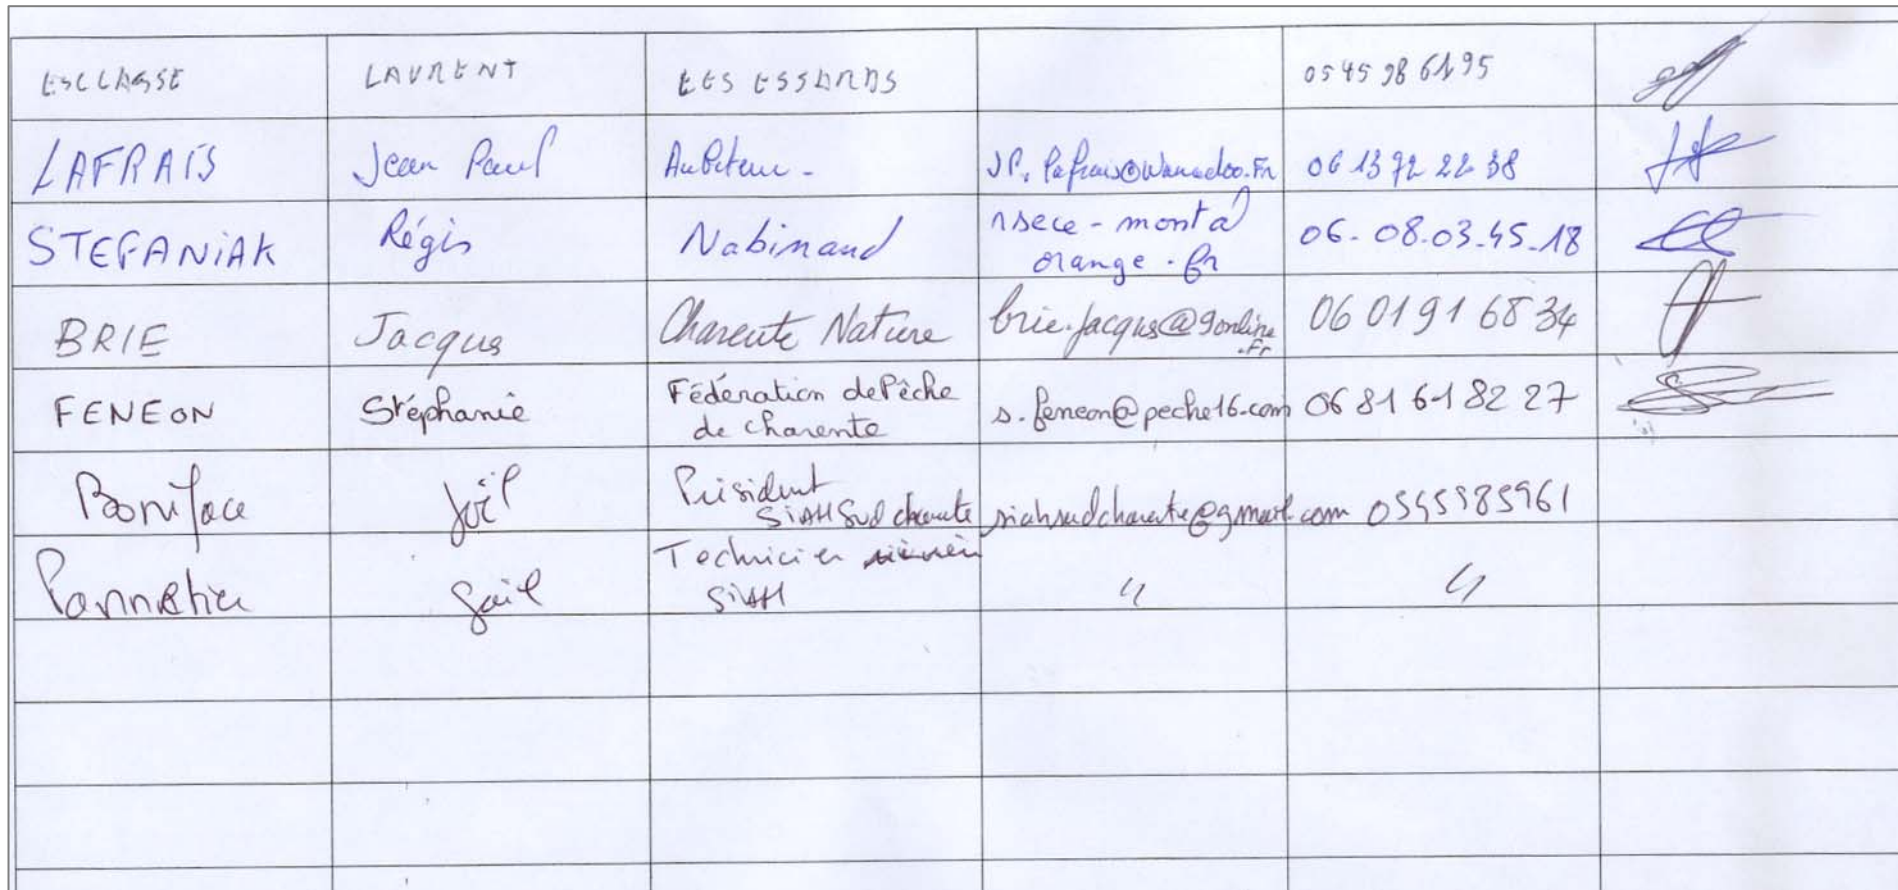 ESCLASSE LAURENT LES ESSARDS 05 45 98 61 95
LAFRAIS Jean Paul Aubeterre - JP.lafrais@wanadoo.Fr 06 13 72 22 38
STEFANIAK Régis Nabinaud nsece-monta
orange.fr 06-08.03.45.18
BRIE Jacques Charente Nature brie.jacques@9online
.Fr 06 01 91 68 34
FENEON Stéphanie Fédération de Pêche
de charente s.feneon@peche16.com 06 81 61 82 27
Boniface Joël Président
SIAH Sud charente siahsudcharente@gmail.com 0545985961
Pannetier Gaël Technicien
SIAH " "